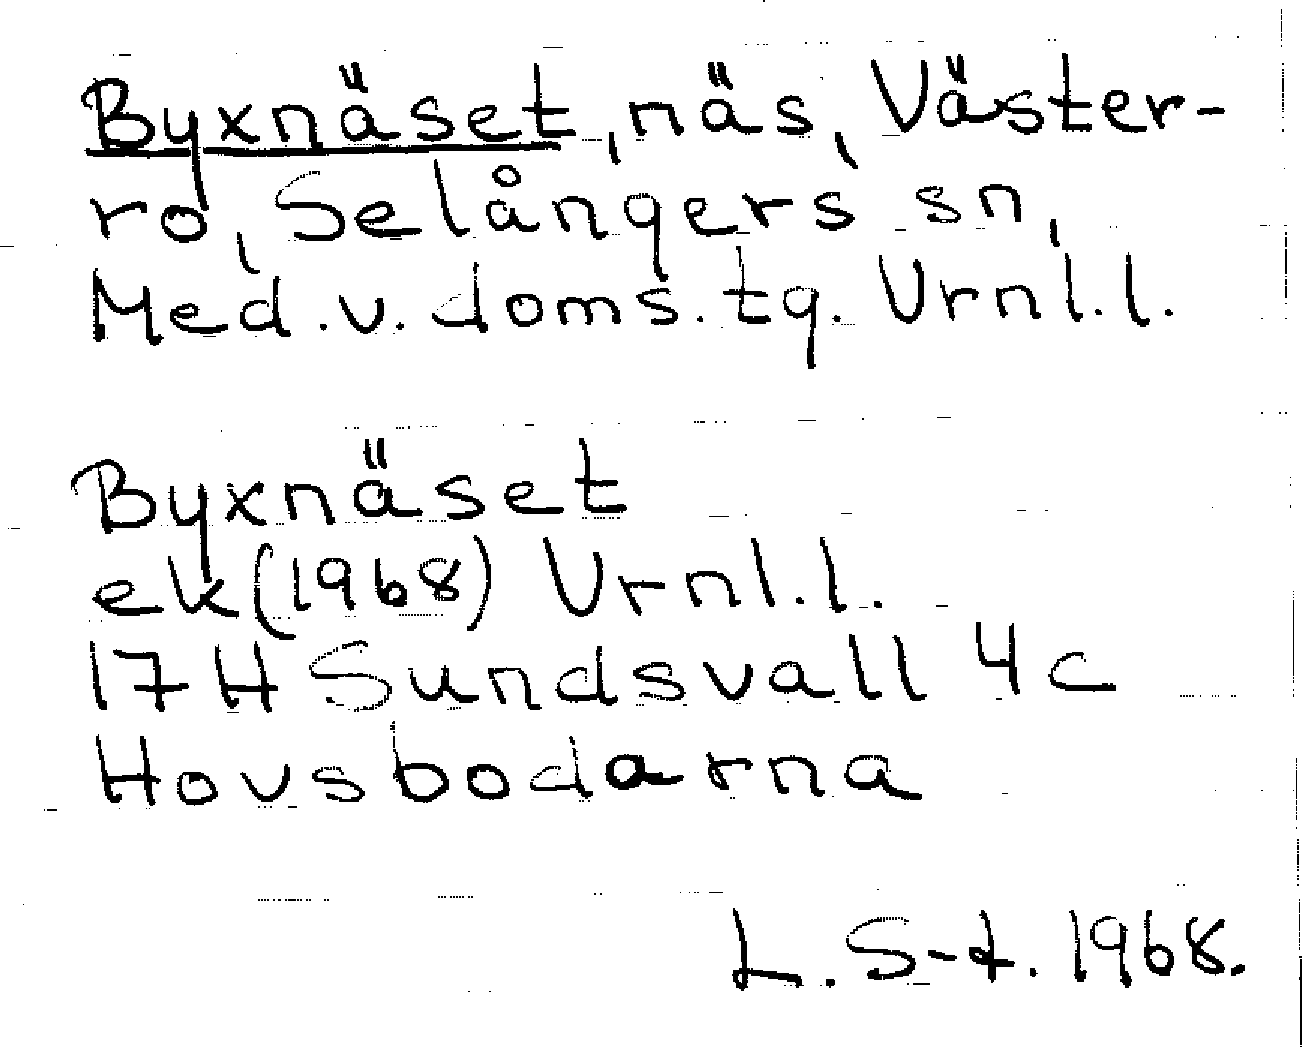 Byxnäset, näs, Väster-
ro, Selångers sn,
Med. v. doms. tg. Vrnl. l.
Byxnäset
ek (1968) Vrnl. l.
17 H Sundsvall 4 c
Hovsbodarna
L. S-t. 1968.